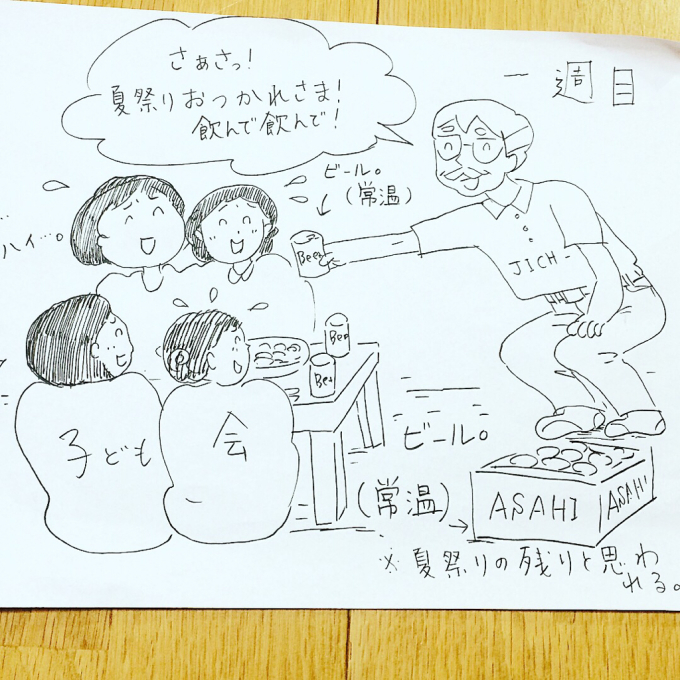 一週目
さぁさっ!
夏祭りおつかれさま!
飲んで飲んで!
ビール。
(常温)
ハイ…。
Beer
JICH-
Bee
Be
子ども
会
ビール。
(常温)
ASAHI
ASAHI
※夏祭りの残りと思わ
れる。